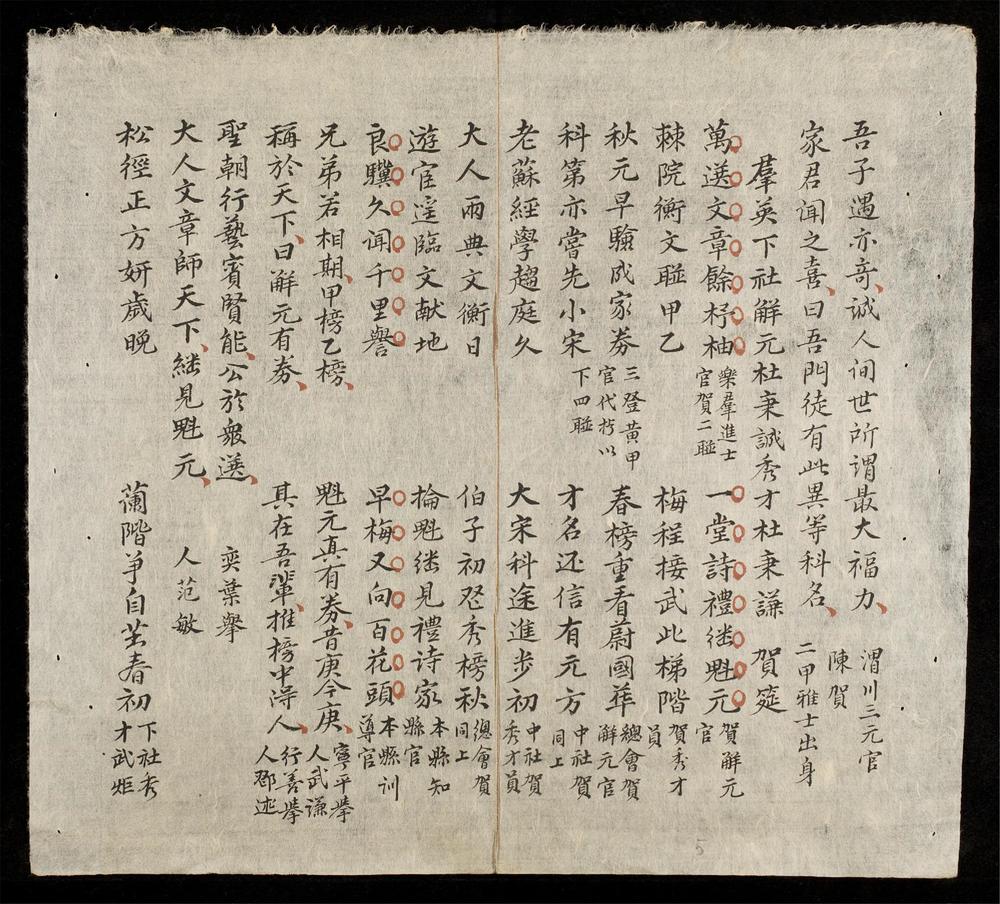 吾子遇亦奇誠人间世所谓最大福力 渭川三元官陳賀
家君闻之喜曰吾門徒有此異等科名 二甲雅士出身
羣英下社解元杜秉誠秀才杜秉謙 賀筵
萬選文章餘杼柚 樂羣進士官賀二聯 一堂詩禮継魁元 賀解元官
棘院衡文聯甲乙 梅程接武此梯階 賀秀才員
秋元早驗成家券 三登黃甲官代拧以下四聯 春榜重看蔚國華 總會賀解元官
科第亦當先小宋 才名还信有元方 中社賀同上
老蘇經學趨庭久 大宋科途進步初 中社賀秀才員
大人雨典文衡日 伯子初登秀榜秋 總會賀同上
遊宦遥臨文献地 掄魁継見禮詩家 本縣知縣官
良驥久闻千里譽 早梅又向百花頭 本縣訓導官
兄弟若相期甲榜乙榜 魁元真有券昔庚今庚 寧平舉人武謙
稱於天下曰解元有券 其在吾輩推榜中淂人 行善舉人鄧迹
聖朝行藝賓賢能公於衆選 奕葉舉
大人文章師天下継見魁元 人范敏
松徑正方妍歲晚 蘭階爭自茁春初 下社秀才武炬